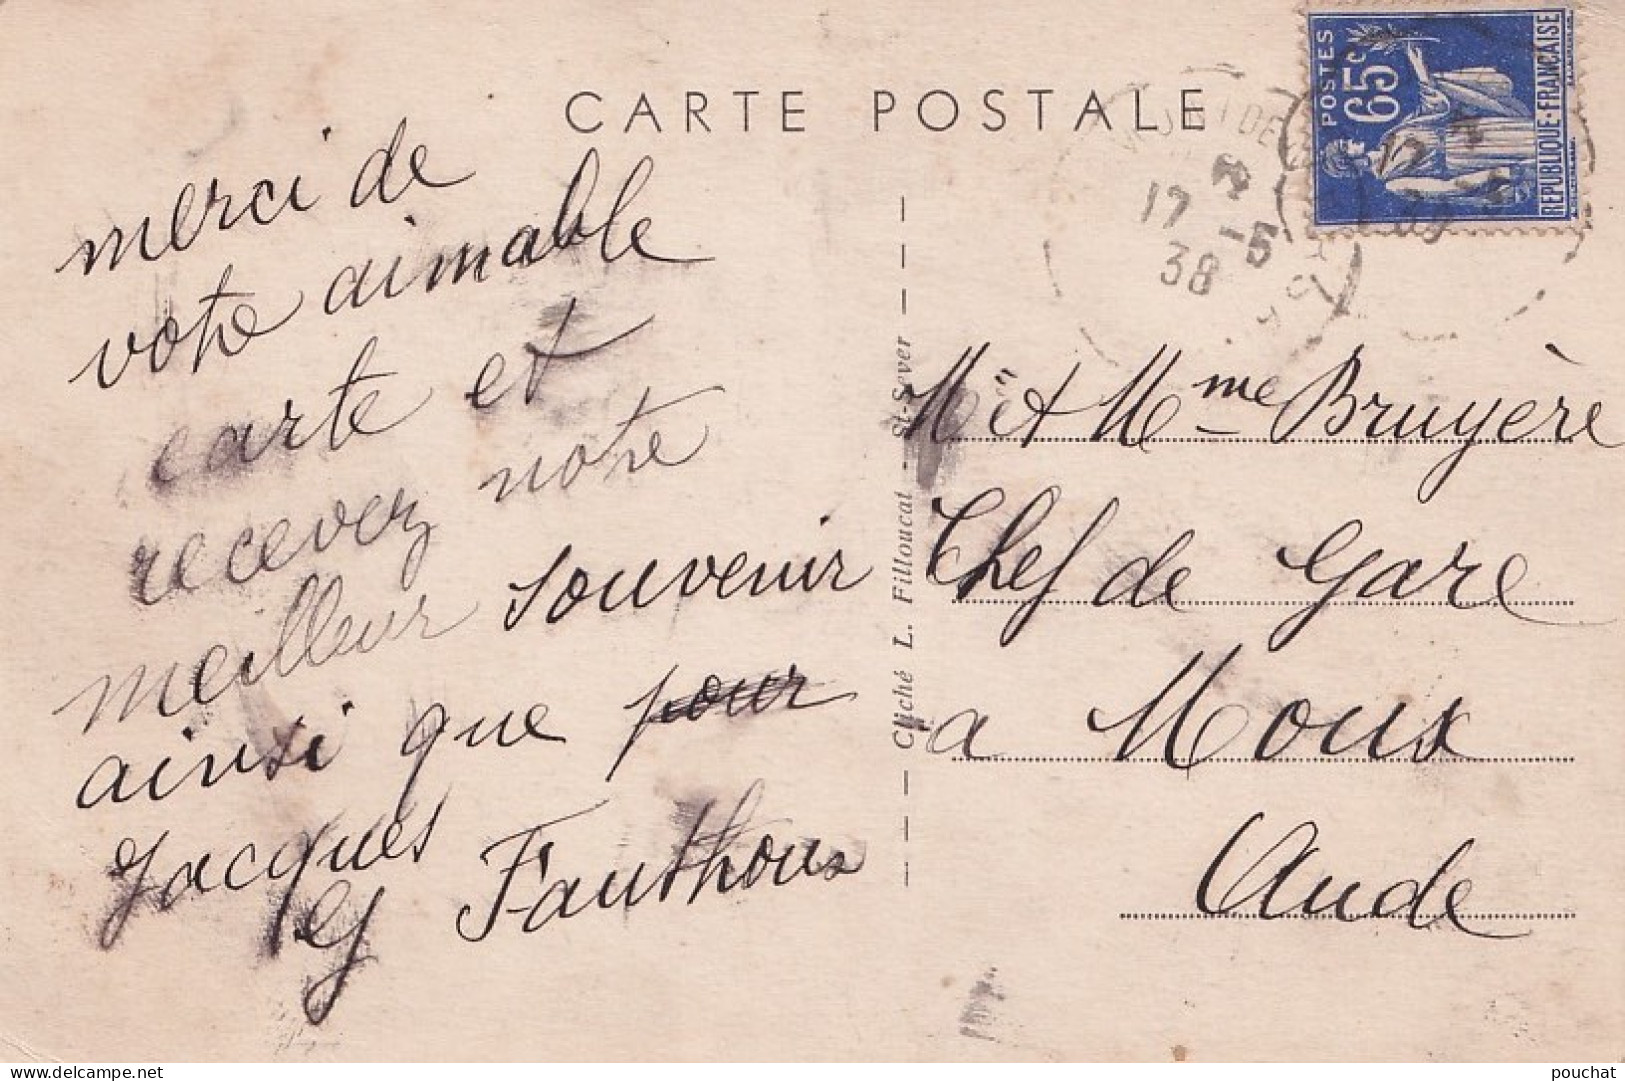 CARTE POSTALE
merci de
votre aimable
carte et
recevez notre
meilleur souvenir
ainsi que pour
Jacques
G Fauthoux
Cliché L. Filloucat - St-Sever
POSTES
65c
REPUBLIQUE-FRANÇAISE
17 -5
38
Mr et Mme Bruyère
Chef de Gare
a Moux
Aude
pouchat